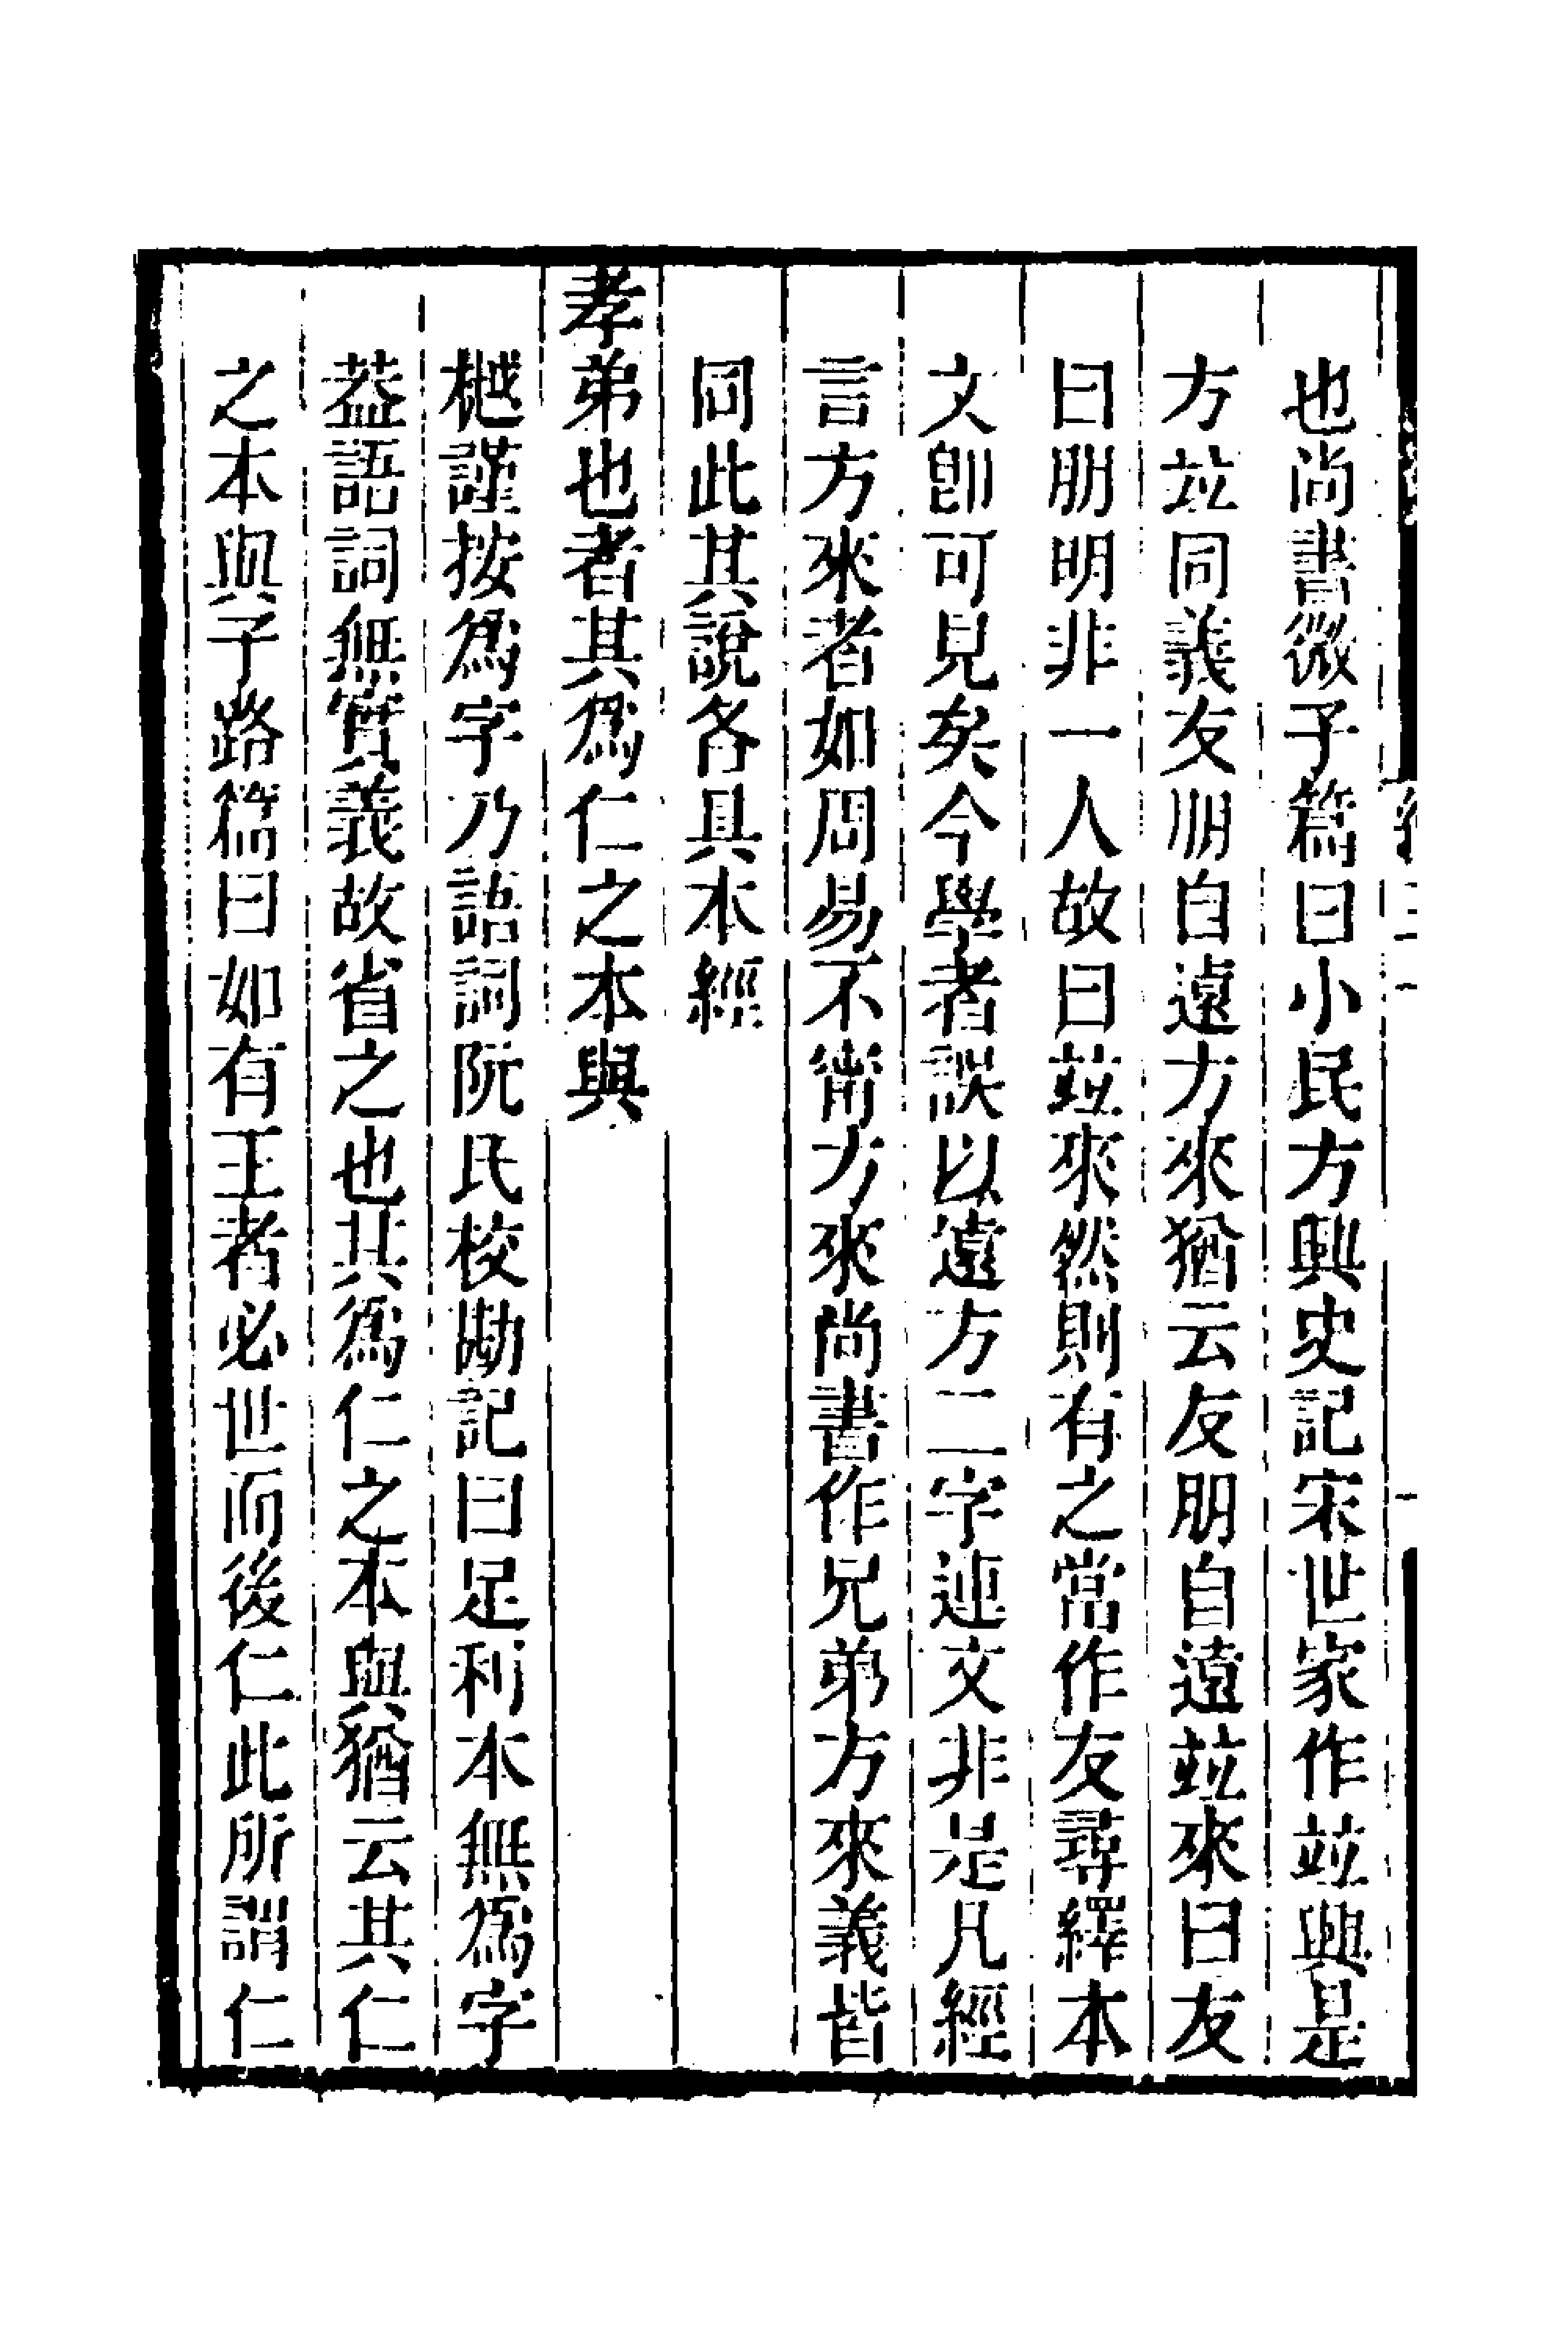 也尚書微子篇曰小民方興史記宋世家作竝興是
方竝同義友朋自遠方來猶云友朋自遠竝來曰友
曰朋明非一人故曰竝來然則有之當作友尋繹本
文卽可見矣今學者誤以遠方二字連文非是凡經
言方來者如周易不甯方來尚書作兄弟方來義皆
同此其說各具本經
孝弟也者其爲仁之本與
樾謹按爲字乃語詞阮氏校勘記曰足利本無爲字
葢語詞無實義故省之也其爲仁之本與猶云其仁
之本與子路篇曰如有王者必世而後仁此所謂仁